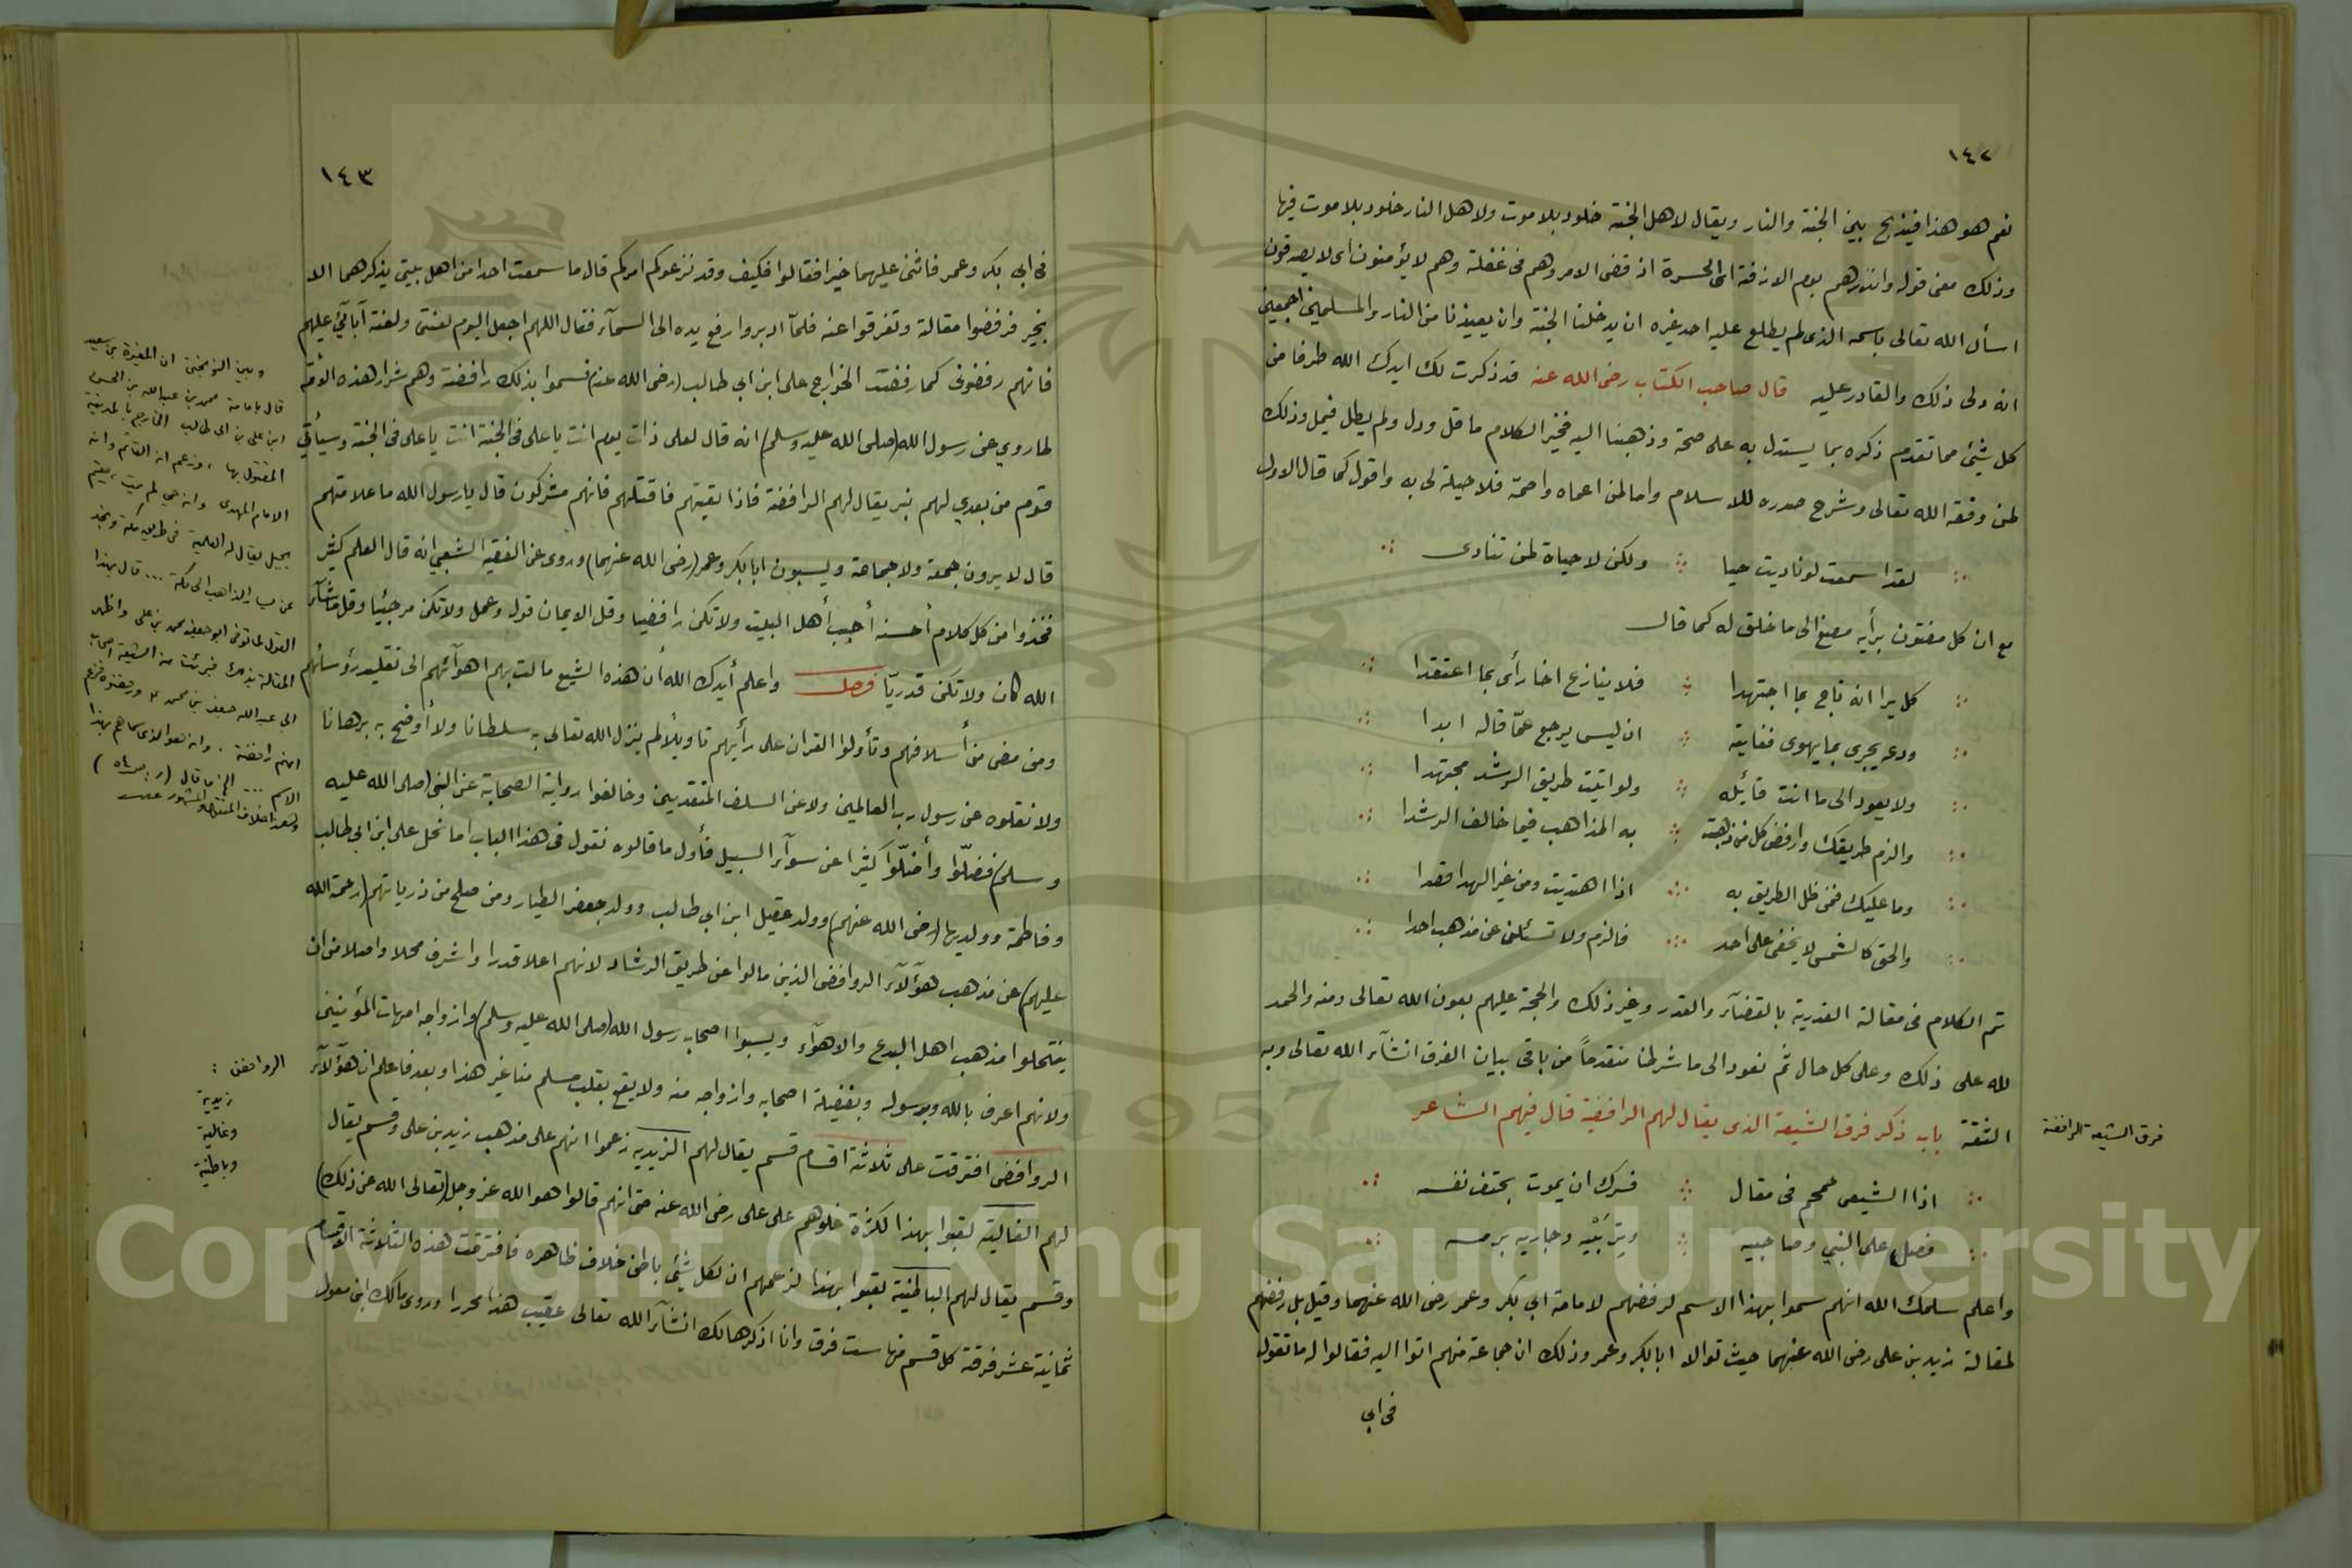 ١٤٢
نعم هو هذا فيذبح بين الجنة والنار ويقال لاهل الجنة خلود بلا موت ولاهل النار خلود بلا موت فيها
وذلك معنى قوله وانذرهم يوم الازفة اى الحسرة اذ قضى الامر وهم في غفلة وهم لا يؤمنون اى لا يصدقون
اسأل الله تعالى باسمه الذى لم يطلع عليه احد غيره ان يدخلنا الجنة وان يعيذنا من النار والمسلمين اجمعين
انه ولى ذلك والقادر عليه قال صاحب الكتاب رضى الله عنه قد ذكرت لك ايدك الله طرفا من
كل شيئ مما تقدم ذكره بما يستدل به على صحة وذهبنا اليه فخير الكلام ما قل ودل ولم يطل فيمل وذلك
لمن وفقه الله تعالى وشرح صدره للاسلام واما لمن اعماه واصمه فلا حيلة لى به واقول كما قال الاول
لقد اسمعت لو ناديت حيا ولكن لا حياة لمن تنادى
مع ان كل مفتون برأيه مصغ الى ما خلق له كما قال
كل يرا انه ناج بما اجتهدا فلا ينازع اخا رأى بما اعتقدا
ودعه يجرى بما يهوى فغايته ان ليس يرجع عمّا قاله ابدا
ولا يعود الى ما انت قائله ولو اتيت طريق الرشد مجتهدا
والزم طريقك وارفض كل من ذهبت به المذاهب فيما خالف الرشدا
وما عليك فمن ظل الطريق به اذا اهتديت ومن غير الهدا فقدا
والحق كالشمس لا يخفى على احد فالزم ولا تسئلن عن مذهب احدا
تم الكلام فى مقالة القدرية بالقضآء والقدر وغير ذلك والحجة عليهم بعون الله تعالى ومنه والحمد
لله على ذلك وعلى كل حال ثم نعود الى ما شرطنا متقدماً من باقى بيان الفرق انشآء الله تعالى وبه
الثقة باب ذكر فرق الشيعة الذى يقال لهم الرافضة قال فيهم الشاعر
فرق الشيعة الرافضة
اذا الشيعى جمجم فى مقال فسرك ان يموت بحتف نفسه
فصل على النبي وصاحبيه وجاريه برمسه
واعلم سلمك الله انهم سموا بهذا الاسم لرفضهم لامامة ابى بكر وعمر رضى الله عنهما وقيل بل رفضهم
لمقالة زيد بن على رضى الله عنهما حيث توالا ابا بكر وعمر وذلك ان جماعة منهم اتوا اليه فقالوا له ما تقول
فى ابى
١٤٣
فى ابى بكر وعمر فاثنى عليهما خيرا فقالوا فكيف وقد نزعوكم امركم قال ما سمعت احدا من اهل بيتى يذكرهما الا
بخير فرفضوا مقالة وتفرقوا عنه فلمّا ادبروا رفع يده الى السمآء فقال اللهم اجعل اليوم لعنتى ولعنة آبائي عليهم
فانهم رفضونى كما رفضت الخوارج على ابن ابي طالب (رضى الله عنه) فسموا بذلك رافضة وهم شرار هذه الامّة
لما روي عن رسول الله (صلى الله عليه وسلم) انه قال لعلى ذات يوم انت يا على فى الجنة انت يا على فى الجنة وسيأتي
قوم من بعدي لهم نبز يقال لهم الرافضة فاذا لقيتهم فاقتلهم فانهم مشركون قال يا رسول الله ما علامتهم
قال لا يرون جمعة ولا جماعة ويسبون ابا بكر وعمر (رضى الله عنهما) وروى عن الفقيه الشعبي انه قال العلم كثير
فخذوا من كل كلام أحسنه أحبب أهل البيت ولا تكن رافضيا وقل الايمان قول وعمل ولا تكن مرجئيا وقل ما شآء
الله كان ولا تكن قدريّا فصل واعلم أيدك الله أن هذه الشيع مالت بهم اهوآئهم الى تقليد رؤسائهم
ومن مضى من أسلافهم وتأولوا القران على رأيهم تاويلاً لم ينزل الله تعالى به سلطانا ولا أوضح به برهانا
ولا نقلوه عن رسول رب العالمين ولا عن السلف المتقدمين وخالفوا رواية الصحابة عن النبي (صلى الله عليه
وسلم) فضلّوا وأضلّوا كثيرا عن سوآء السبيل فأول ما قالوه نقول فى هذا الباب اما نحل على ابن ابي طالب
وفاطمة وولديها (رضى الله عنهم) وولد عقيل ابن ابي طالب وولد جعفر الطيار ومن صلح من ذرياتهم (رحمة الله
عليهم) عن مذهب هؤلآء الروافض الذين مالوا عن طريق الرشاد لانهم اعلا قدرا واشرف محلا واصلا من ان
ينتحلوا مذهب اهل البدع والاهوآء ويسبوا اصحاب رسول الله (صلى الله عليه وسلم) وازواجه امهات المؤمنين
ولانهم اعرف بالله وبرسوله وبفضيلة اصحابه وازواجه منه ولا يقع بقلب مسلم منا غير هذا وبعد فاعلم ان هؤلآء
الروافض افترقت على ثلاثة اقسام قسم يقال لهم الزيديه زعموا انهم على مذهب زيد بن على وقسم يقال
لهم الغالية لقبوا بهذا لكثرة غلوهم على على رضى الله عنه حتى انهم قالوا هو الله عز وجل (تعالى الله عن ذلك)
وقسم يقال لهم الباطنية لقبوا بهذا لزعمهم ان لكل شيئ باطن خلاف ظاهره فافترقت هذه الثلاثة الاقسام
ثمانية عشر فرقة كل قسم منها ست فرق وانا اذكرها لك انشآء الله تعالى عقيب هذا محررا وروى مالك ابن مغول
وبين النوبختى ان المغيرة بن سعيد
قال بامامة محمد بن عبد الله بن الحسن
ابن على بن ابى طالب الخارج بالمدينة
المقتول بها، وزعم انه القائم وانه
الامام المهدى وانه حي لم يمت، مقيم
بجبل يقال له العلمية فى طريق مكة ونجد
عن الذاهب الى مكة ... قال بهذا
القول لما توفى ابو جعفر محمد بن على واظهر
المقالة بذلك فبرئت منه الشيعة اصحاب
ابى عبد الله جعفر بن محمد ورفضوه فزعم
انهم رافضة. وانه هو الذى سماهم بهذا
الاسم ... الخ ما قال (ر: ص ٥٤)
وهذا خلاف
الروافض:
زيدية
وغالية
وباطنية
Copyright © King Saud University
1957